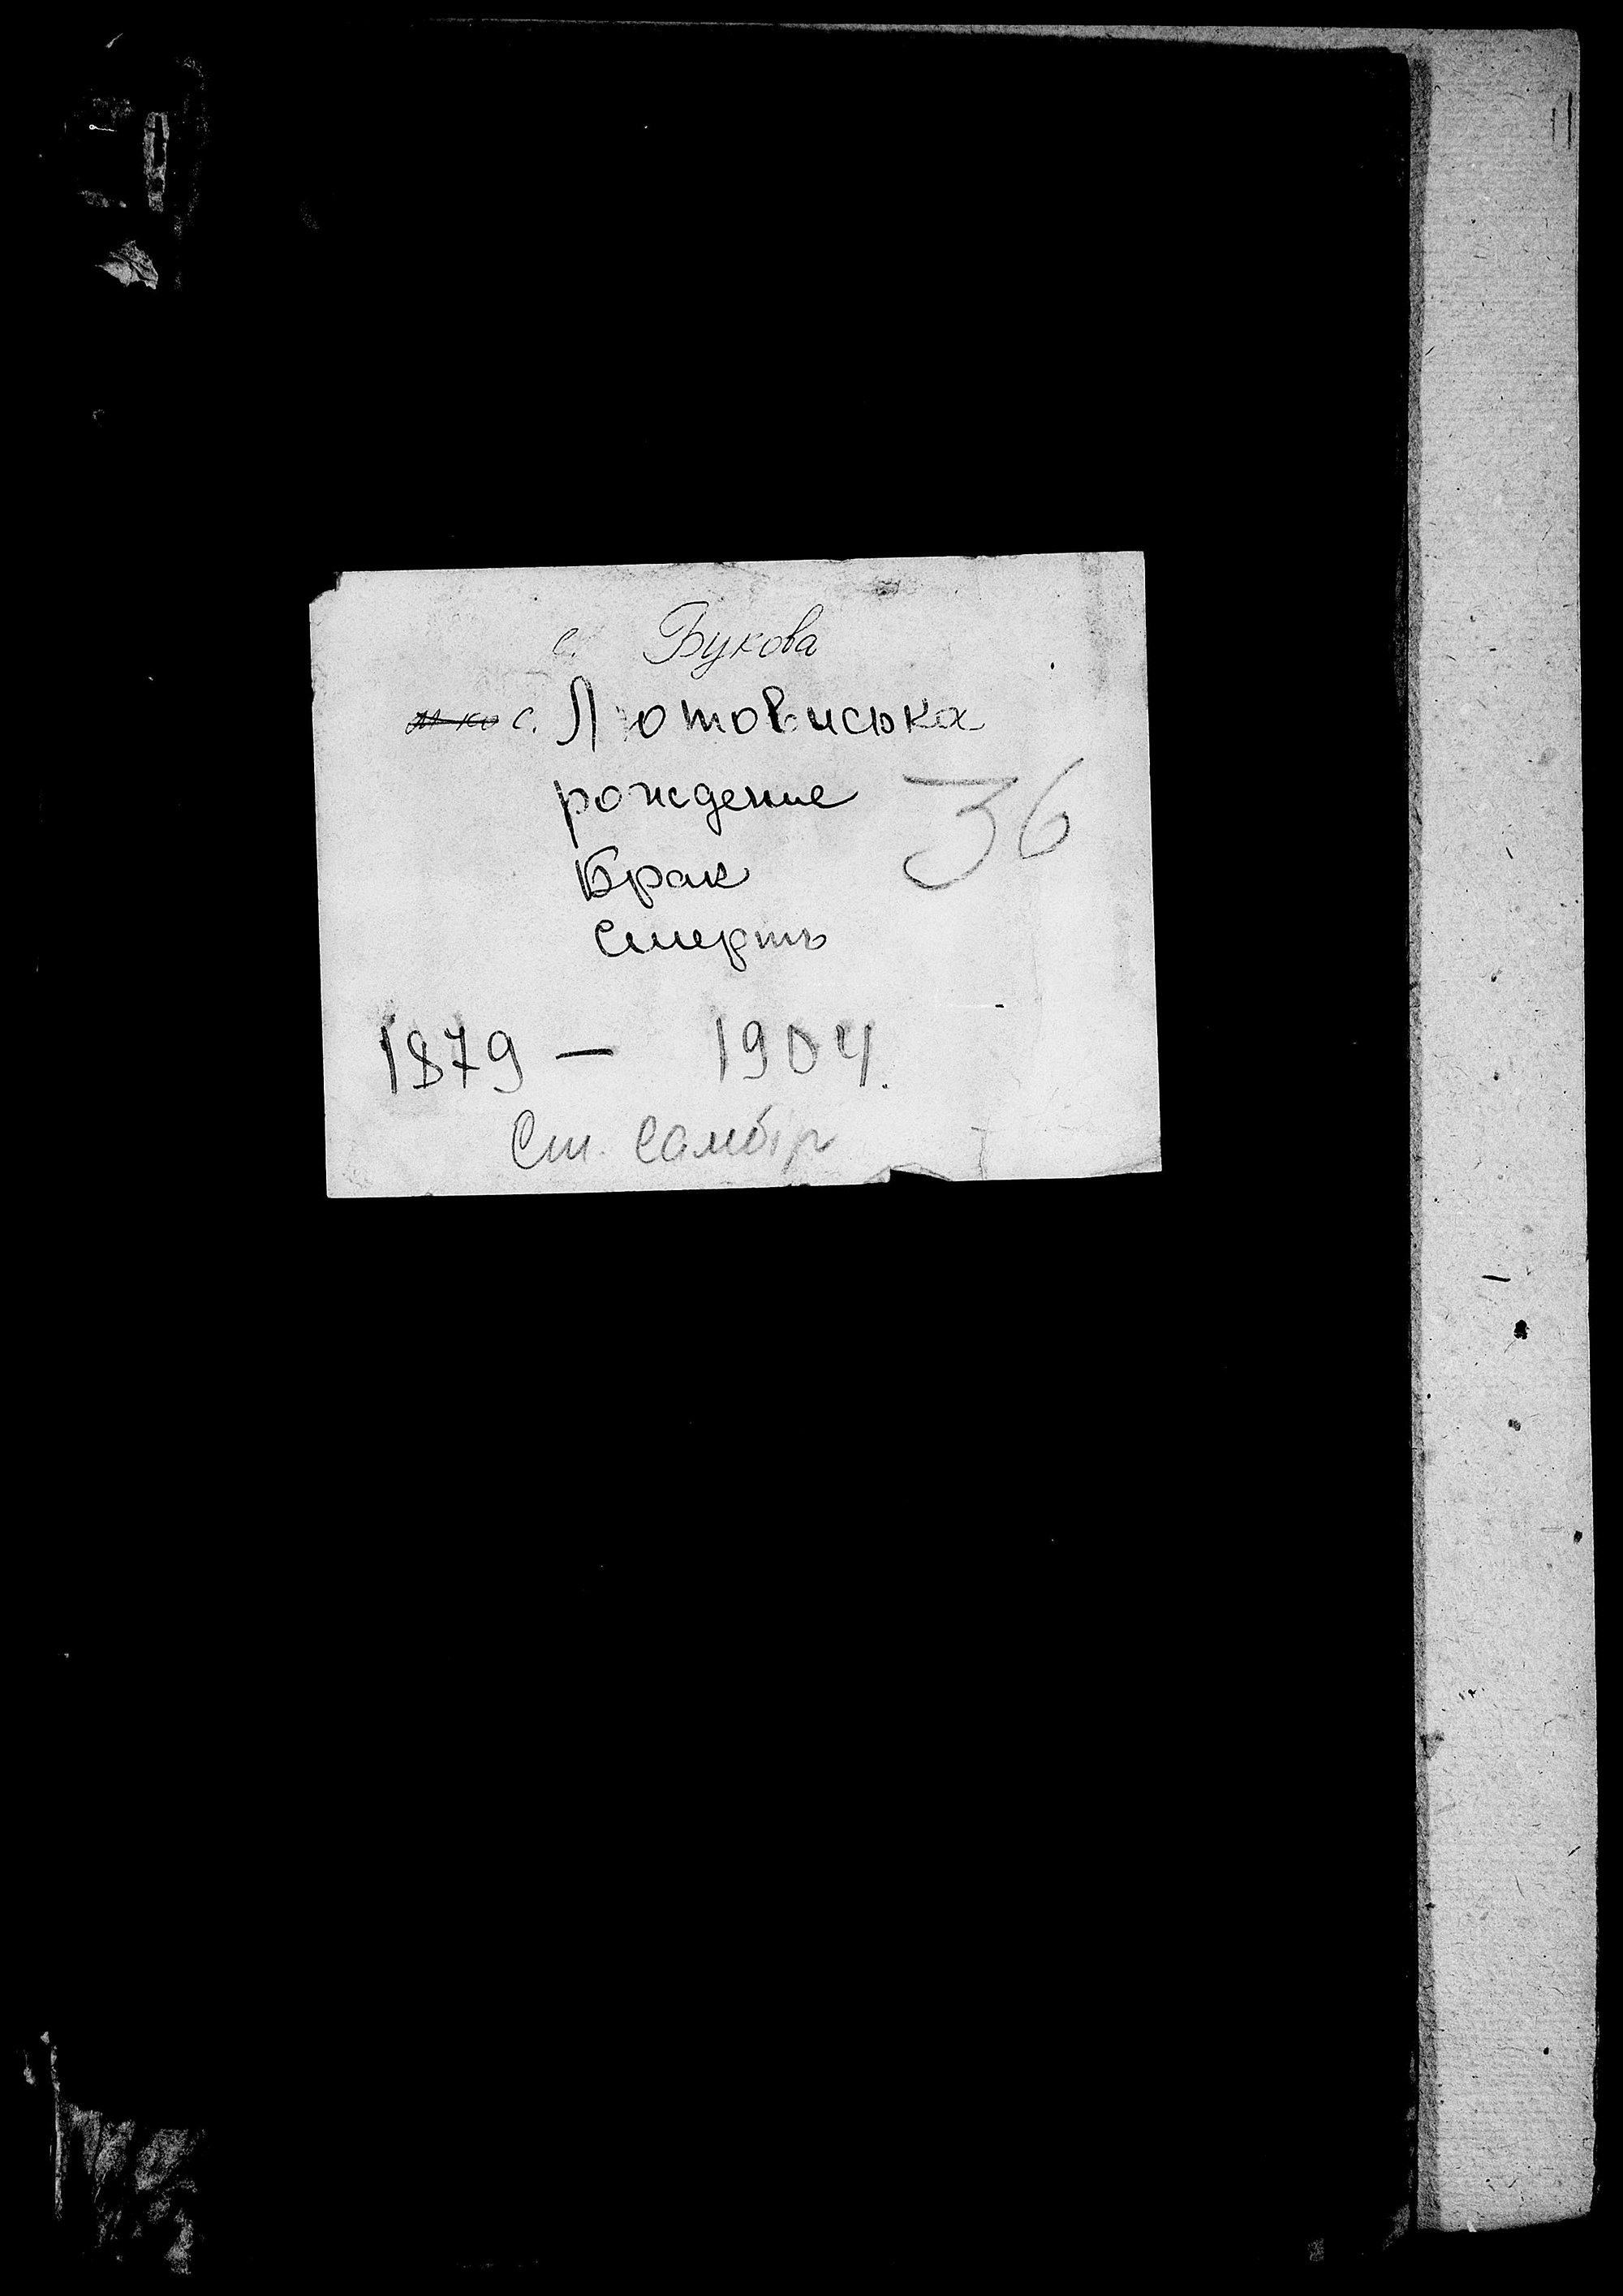 с. Букова
~~м-ко~~ с. Лютовиська
рождение
36
Брак
Смерть
1879 — 1904.
Ст. Самбір